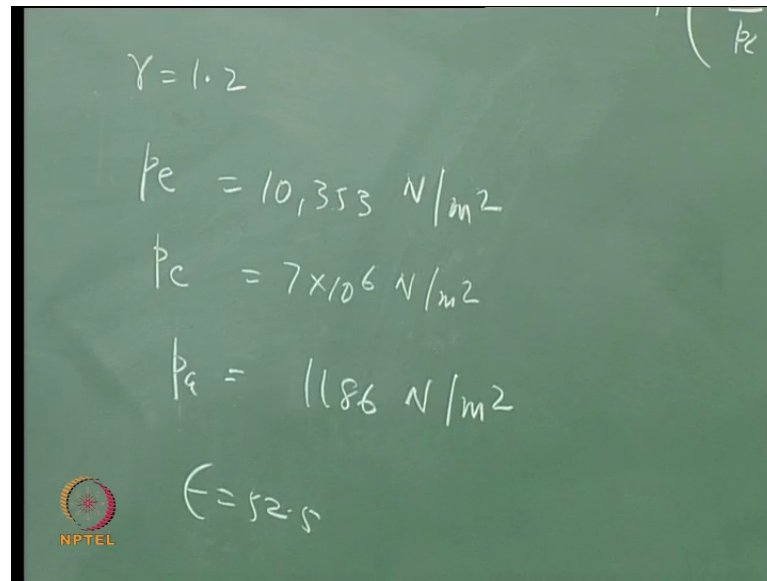 γ = 1.2
pe = 10,353 N/m2
pc = 7×106 N/m2
pa = 1186 N/m2
ϵ = 52.5
pc
NPTEL